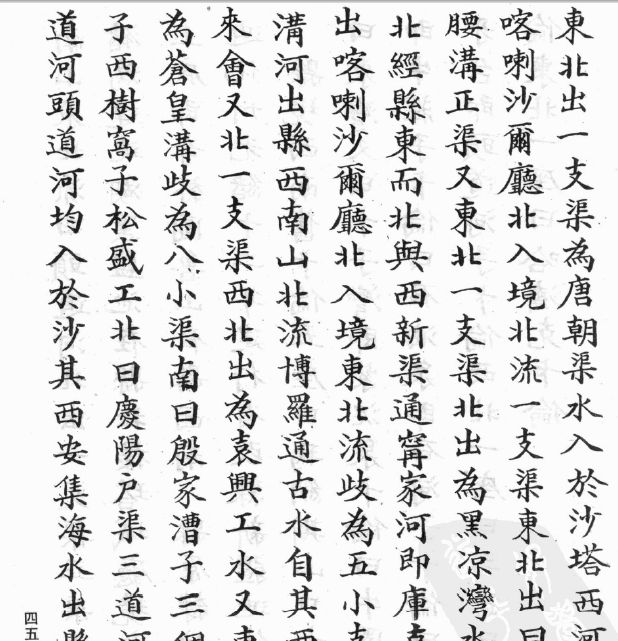 東北出一支渠為唐朝渠水入於沙塔西河
喀喇沙爾廳北入境北流一支渠東北出
腰溝正渠又東北一支渠北出為黑凉灣水
北經縣東而北與西新渠通甯家河即庫
出喀喇沙爾廳北入境東北流歧為五小支
溝河出縣西南山北流博羅通古水自其西
來會又北一支渠西北出為袁興工水又東
為蒼皇溝歧為八小渠南曰殷家漕子三
子西樹窩子松盛工北曰慶陽戶渠三道河
道河頭道河均入於沙其西安集海水出縣
四五